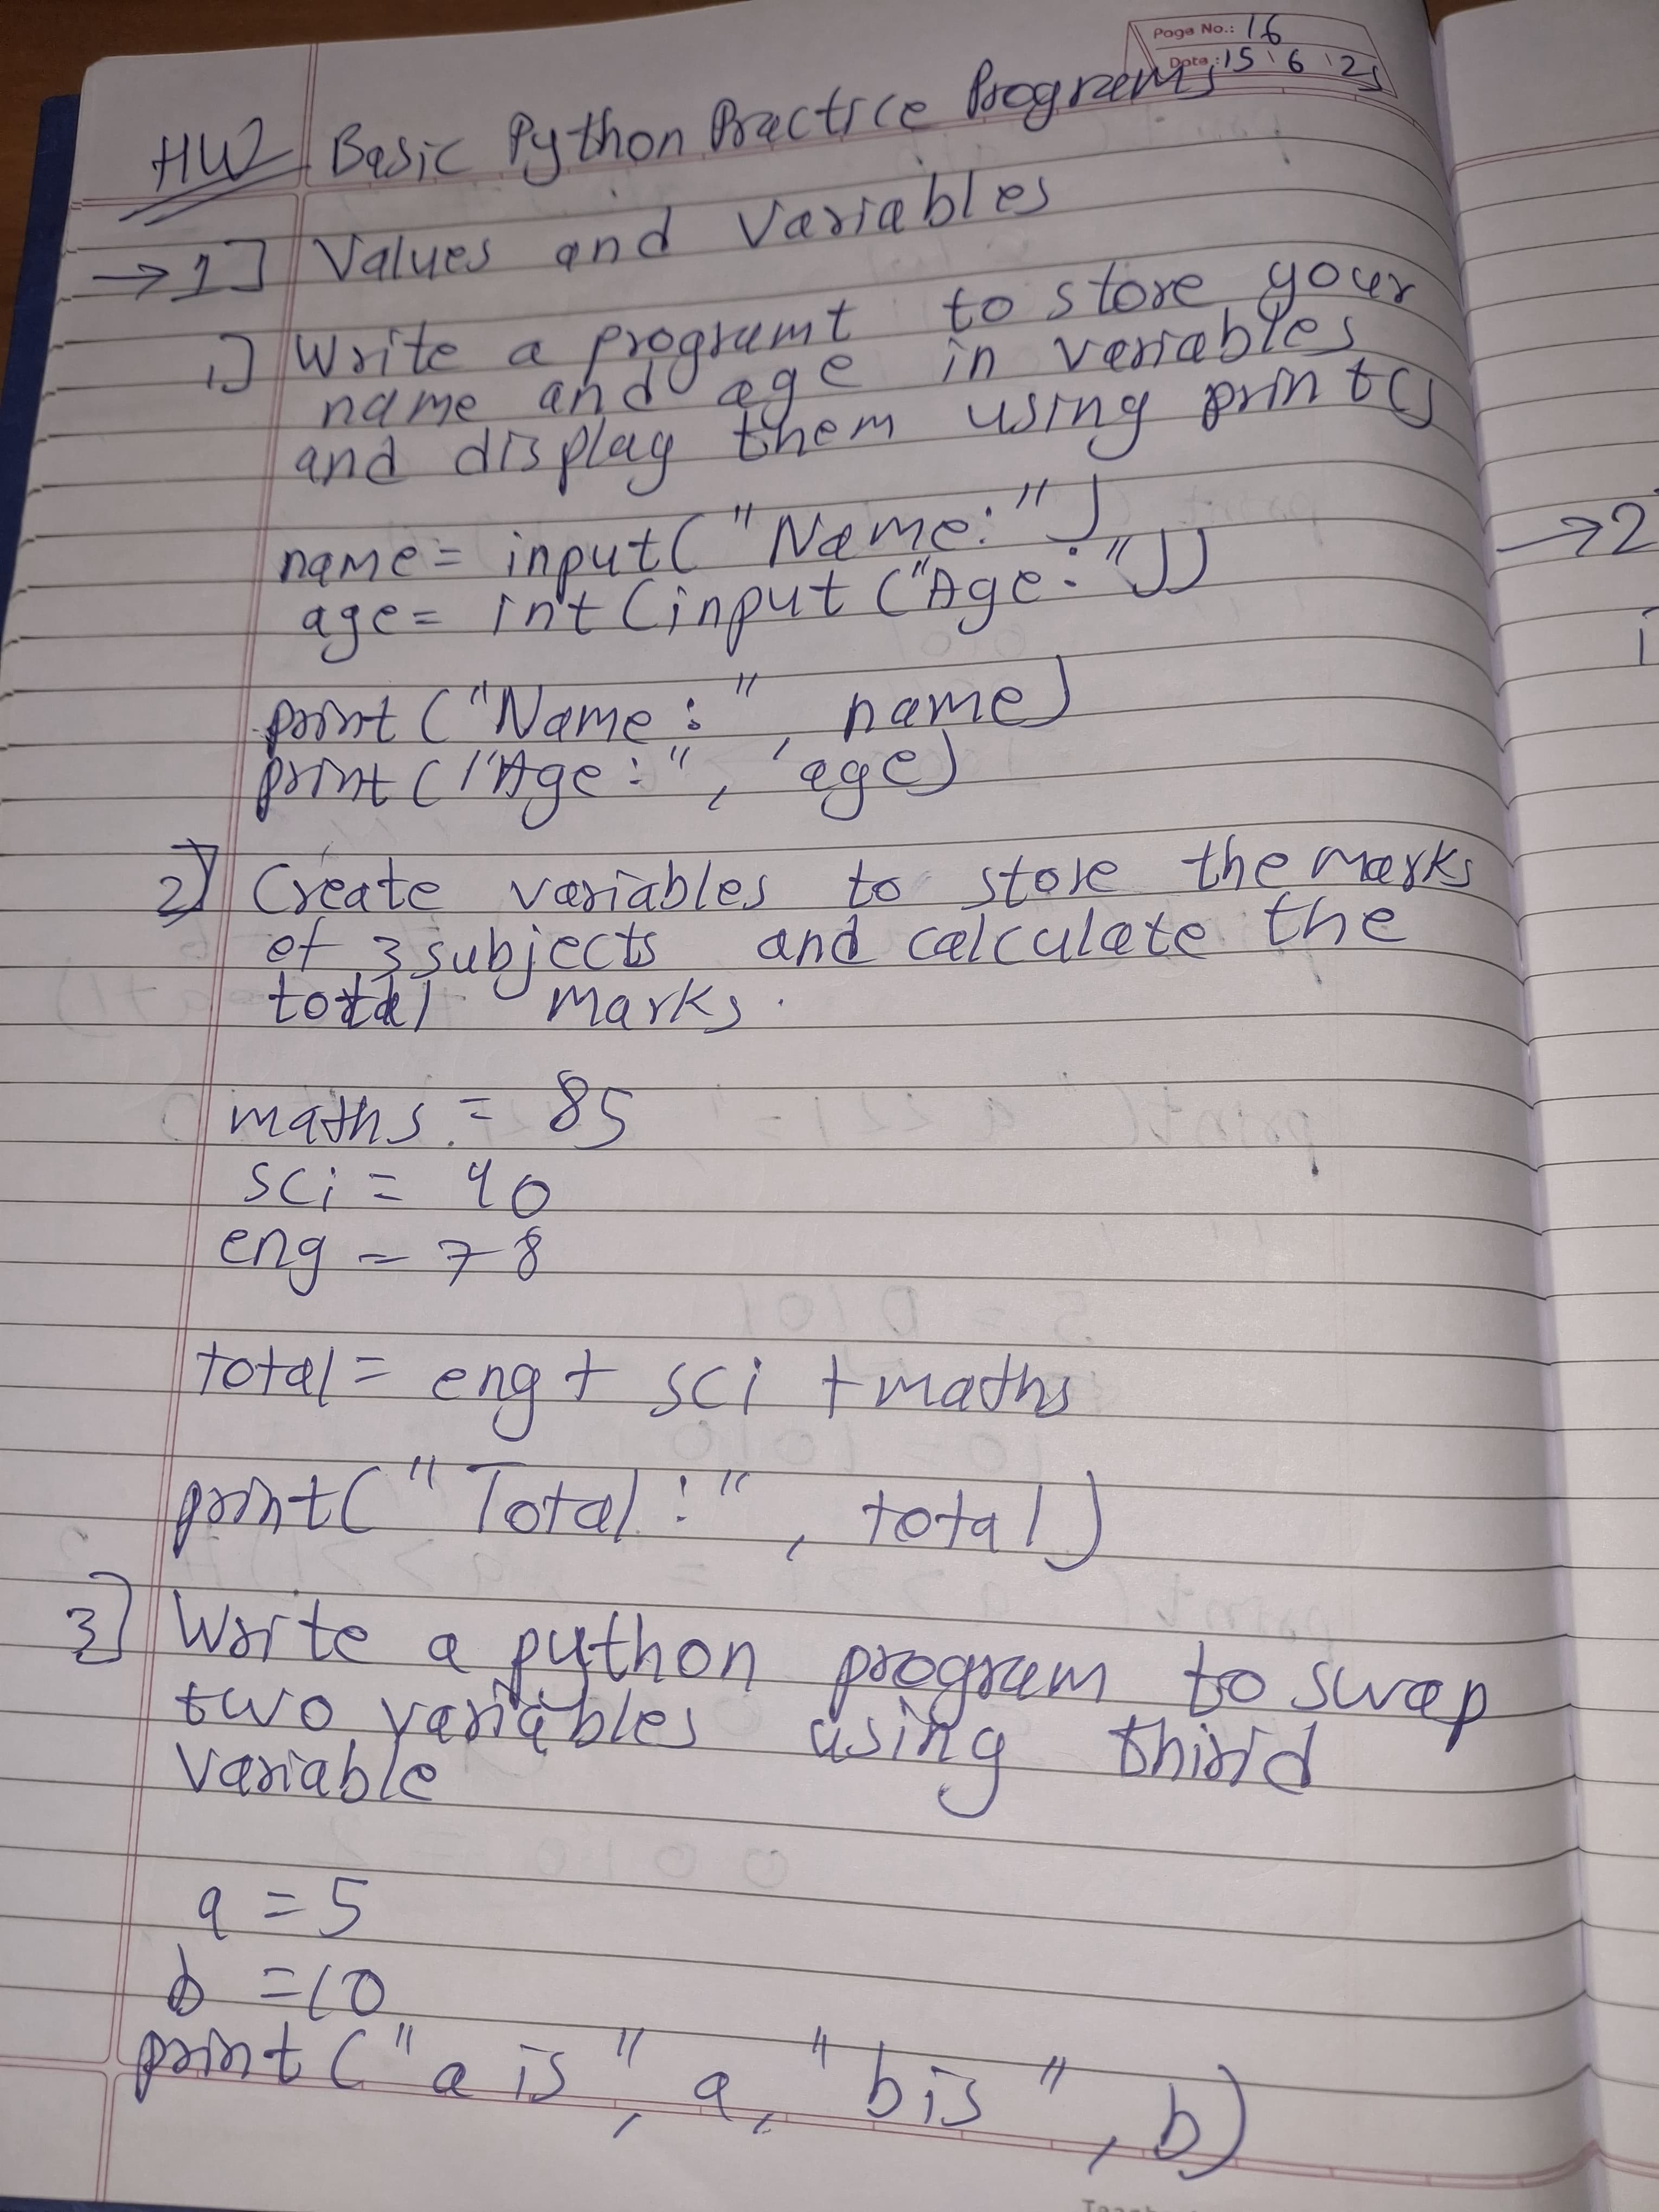 Page No.: 16
Date: 15 6 25
HW Basic Python Practice Programs
→ 1] Values and Variables
i] Write a programt to store your
name and age in variables
and display them using print()
name = input("Name:")
age = int(input("Age:"))
print("Name:", name)
print("Age:", age)
2] Create variables to store the marks
of 3 subjects and calculate the
total marks.
maths = 85
sci = 90
eng = 78
total = eng + sci + maths
print("Total:", total)
3] Write a python program to swap
two variables using third
variable
a = 5
b = 10
print("a is", a, "b is", b)
→ 2
i